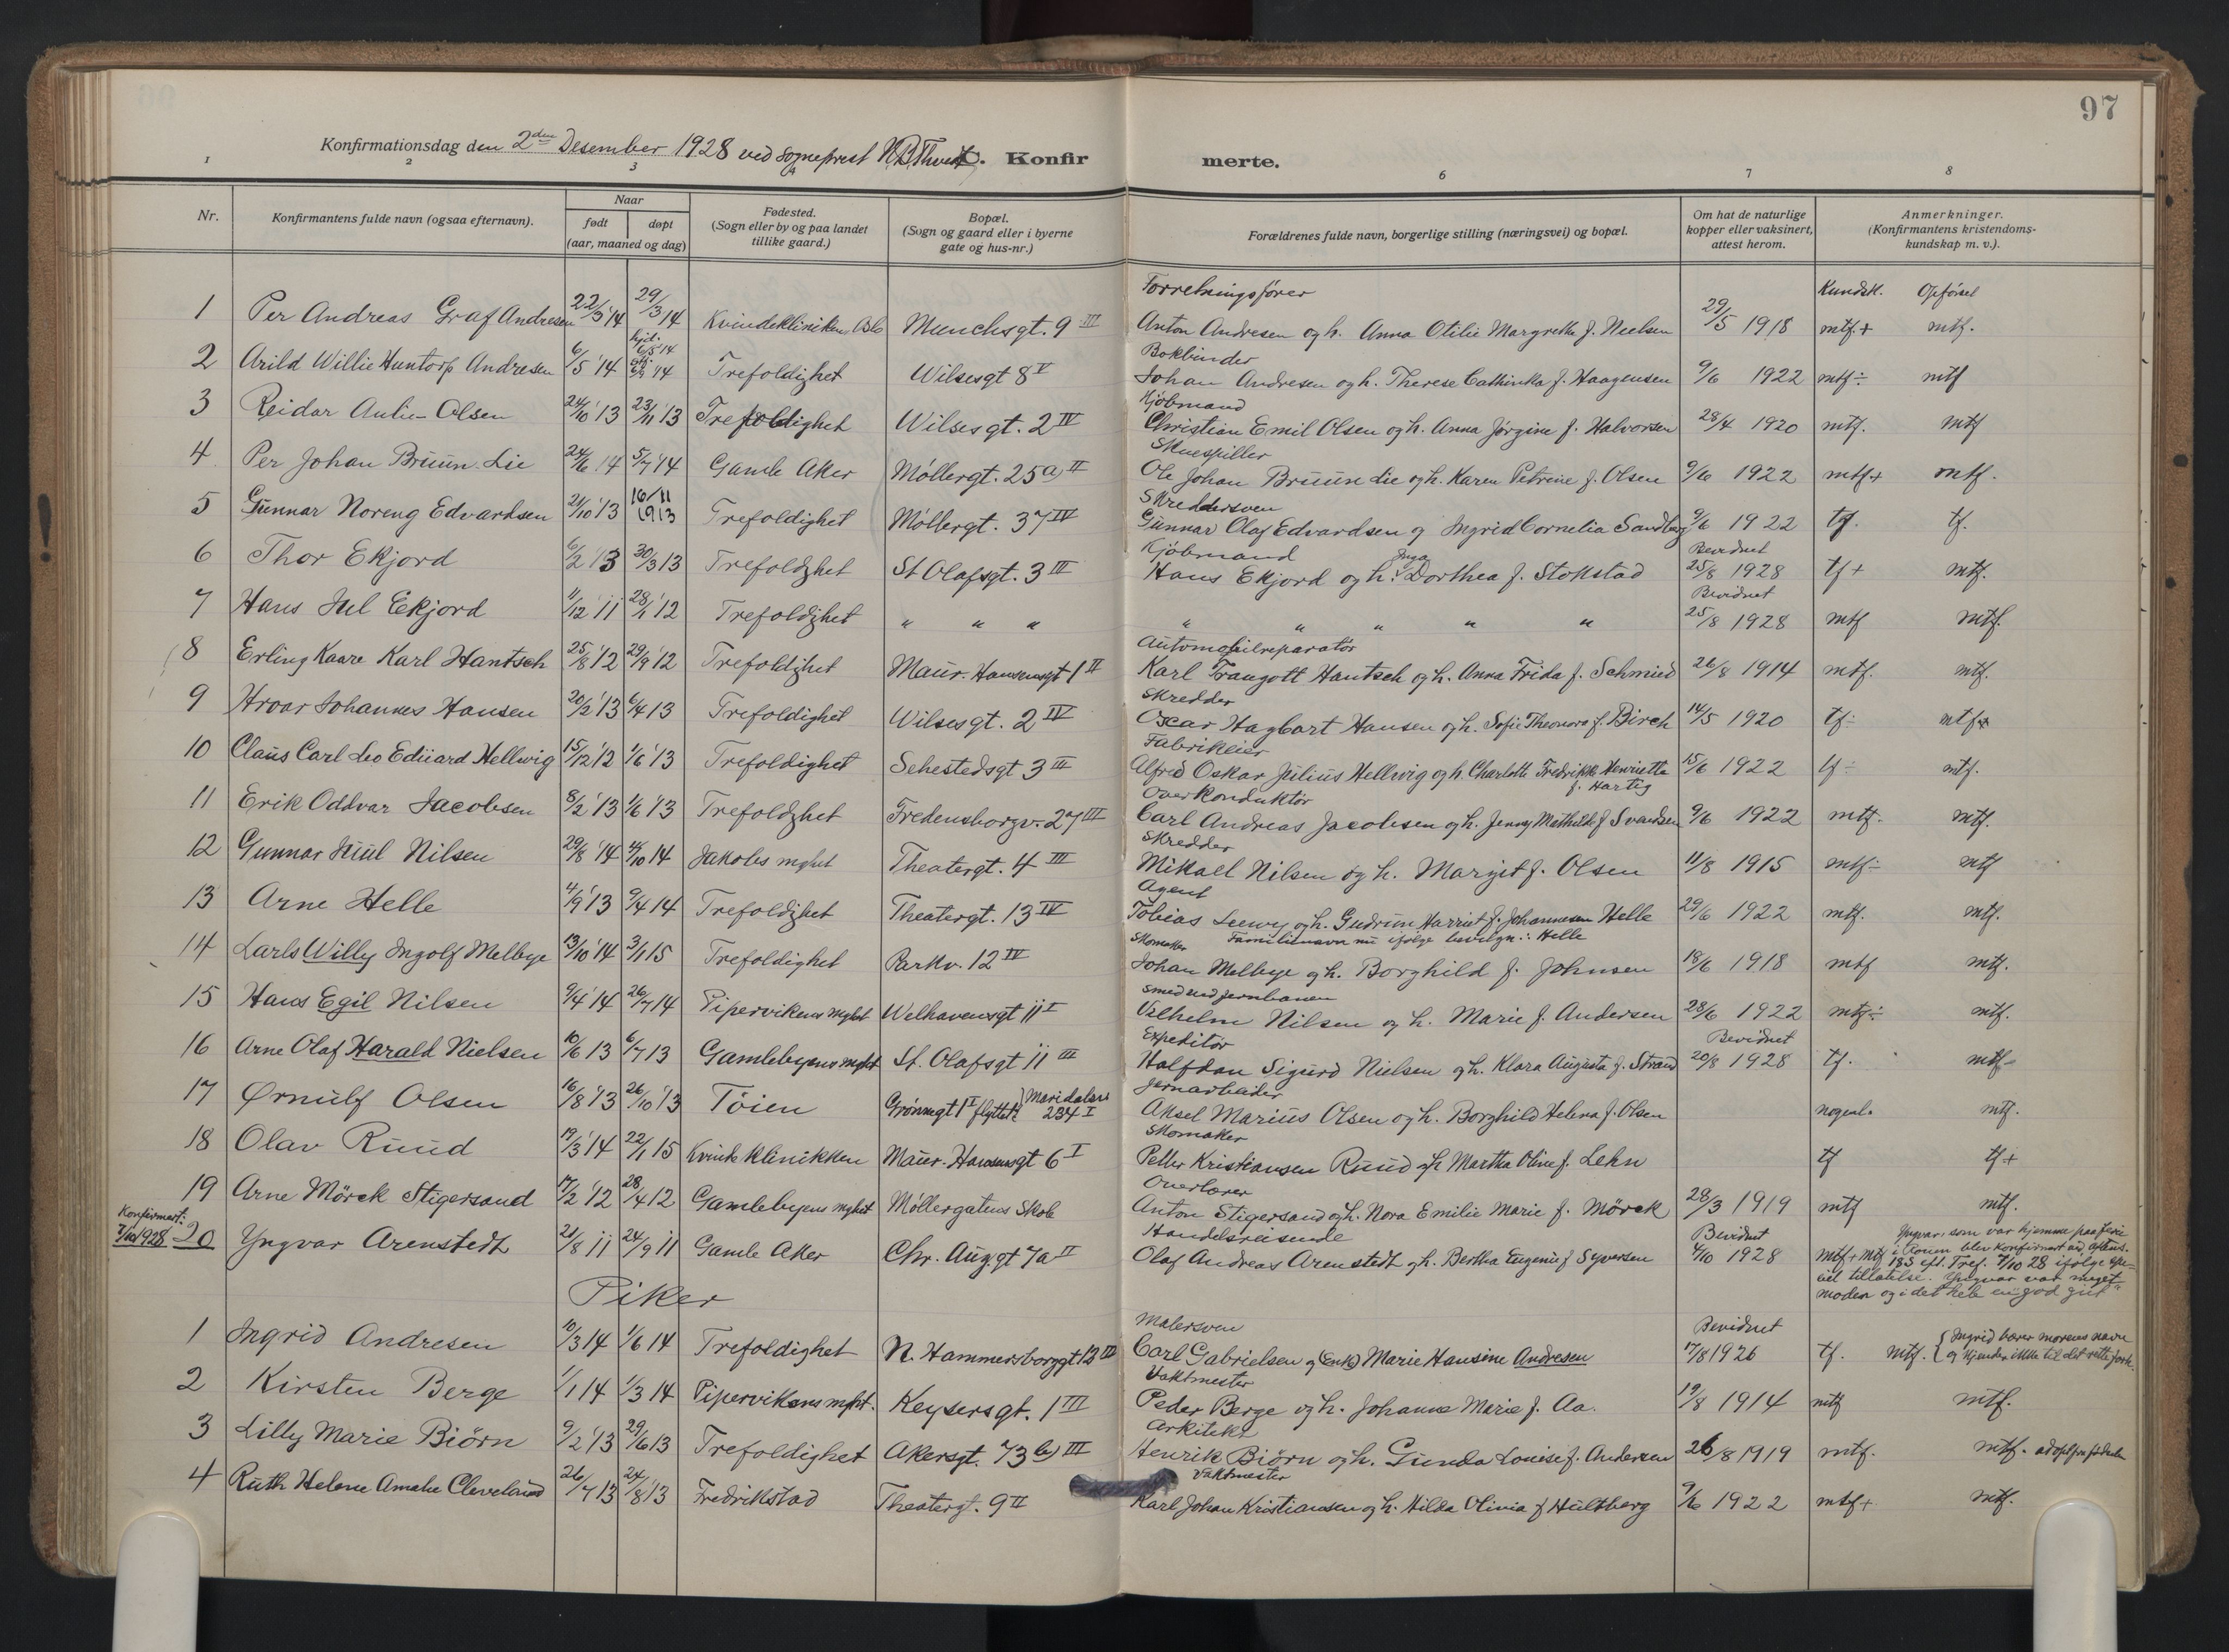 97
Konfirmationsdag den 2den Desember 1928 ved sogneprest C. Konfirmerte.
1 2 3 4 6 7 8
Nr. Konfirmantens fulde navn (ogsaa efternavn). Naar født døpt (aar, maaned og dag) Fødested. (Sogn eller by og paa landet tillike gaard.) Bopæl. (Sogn og gaard eller i byerne gate og hus-nr.) Forældrenes fulde navn, borgerlige stilling (næringsvei) og bopæl. Om hat de naturlige kopper eller vaksinert, attest herom. Anmerkninger. (Konfirmantens kristendoms-kundskap m. v.).
Forretningsfører Kundsk. Opførsel
1 Per Andreas Graf Andresen 22/3 '14 29/3 14 Kvindekliniken Munchsgt. 9 III Anton Andresen og h. Anna Otilie Margrethe f. Neelsen 29/5 1918 mtf.+ mtf.
Bokbinder
2 Arild Willie Huntorp Andresen 6/5 '14 Trefoldighet Wilsesgt 8 V Johan Andresen og h. Therese Cathinka f. Haagensen 9/6 1922 mtf÷ mtf
Kjøbmand
3 Reidar Aulie Olsen 24/10 '13 23/11 '13 Trefoldighet Wilsesgt. 2 IV Christian Emil Olsen og h. Anna Jørgine f. Halvorsen 28/4 1920 mtf. mtf
Skuespiller
4 Per Johan Bruun Lie 24/6 14 5/7 '14 Gamle Aker Møllergt. 25a) II Ole Johan Bruun Lie og h. Karen Petrine f. Olsen 9/6 1922 mtf+ mtf.
Skreddersven
5 Gunnar Noreng Edvardsen 21/10 '13 16/11 1913 Trefoldighet Møllergt. 37 IV Gunnar Olaf Edvardsen og Ingrid Cornelia Sandberg 9/6 1922 tf. tf.
Kjøbmand Bevidnet
6 Thor Ekjord 6/2 '13 30/3 13 Trefoldighet St Olafsgt. 3 III Hans Ekjord og h. Inga Dorthea f. Stokstad 25/8 1928 tf+ mtf.
Bevidnet
7 Hans Jul Ekjord 1/12 '11 28/1 '12 Trefoldighet " " " " " " " " 25/8 1928 mtf mtf.
Automobilreparatør
8 Erling Kaare Karl Hantsch 25/8 '12 29/9 '12 Trefoldighet Maur. Hansensgt 1 II Karl Traugott Hantsch og h. Anna Frida f. Schmied 26/8 1914 mtf. mtf.
Skredder
9 Hroar Johannes Hansen 20/2 '13 6/4 13 Trefoldighet Wilsesgt. 2 IV Oscar Hagbart Hansen og h. Sofie Theonora f. Birch 14/5 1920 tf÷ mtf
Fabrikeier
10 Claus Carl Leo Eduard Hellwig 15/12 12 1/6 '13 Trefoldighet Sehestedsgt 3 III Alfred Oskar Julius Hellwig og h. Charlotte Fredrikke Henriette f. Hartig 15/6 1922 tf÷ mtf.
Overkonduktør
11 Erik Oddvar Jacobsen 8/2 '13 1/6 '13 Trefoldighet Fredensborgv. 27 III Carl Andreas Jacobsen og h. Jenny Mathilde f. Svendsen 9/6 1922 mtf. mtf.
Skredder
12 Gunnar Juul Nilsen 29/8 '14 4/10 14 Jakobs mghet Theatergt. 4 III Mikael Nilsen og h. Margit f. Olsen 11/8 1915 mtf÷ mtf
Agent
13 Arne Helle 4/9 '13 9/4 14 Trefoldighet Theatergt. 13 IV Tobias Leewy og h. Gudrun Harriet f. Johannesen Helle 29/6 1922 mtf. mtf.
Skomaker Familienavn nu ifølge bevilgn.: Helle
14 Carls Willy Ingolf Melbye 13/10 '14 3/1 15 Trefoldighet Parkv. 12 IV Johan Melbye og h. Borghild f. Johnsen 18/6 1918 mtf mtf.
Smed ved jernbanen
15 Hans Egil Nilsen 9/4 '14 26/7 14 Pipervikens mghet Welhavensgt 11 I Vilhelm Nilsen og h. Marie f. Andersen 28/6 1922 mtf÷ mtf.
Expeditør Bevidnet
16 Arne Olaf Harald Nielsen 10/6 13 6/7 13 Gamlebyens mghet St. Olafsgt 11 III Halfdan Sigurd Nielsen og h. Klara Augusta f. Strand 20/8 1928 tf. mtf
Jernarbeider
17 Ørnulf Olsen 16/8 '13 26/10 '13 Tøien Grønnegt 1 I flyttet Maridalsv 234 I Aksel Marius Olsen og h. Borghild Helena f. Olsen nogenl. mtf.
Skomaker
18 Olav Ruud 19/3 '14 22/1 15 Kvindeklinikken Maur. Hansensgt 6 I Petter Kristiansen Ruud og h. Martha Oline f. Lehn tf tf+
Overlærer
19 Arne Mørck Stigersand 17/2 '12 28/4 12 Gamlebyens mghet Møllergatens Skole Anton Stigersand og h. Nora Emilie Marie f. Mørck 28/3 1919 mtf mtf.
Konfirmert: 7/10 1928 Handelsreisende Bevidnet
20 Yngvar Arenstedt 21/8 11 24/9 11 Gamle Aker Chr. Aug.gt 7a II Olaf Andreas Arenstedt og h. Bertha Eugenie f Syversen 4/10 1928 mtf+ mtf
Yngvar, som var hjemme paa ferie
blev konfirmert
Tref. 7/10 28 ifølge spe-
ciel tillatelse. Yngvar var meget
moden og i det hele en god gut
Piker
Malersven Bevidnet
1 Ingrid Andresen 10/3 14 1/6 14 Trefoldighet N. Hammersborggt 12 III Carl Gabrielsen og (Enke) Marie Hansine Andresen 17/8 1926 tf. mtf. { Ingrid bærer morens navn og kjender ikke til det rette forh.
Vaktmester
2 Kirsten Berge 1/1 14 1/3 14 Pipervikens mghet. Keysersgt. 1 III Peder Berge og h. Johanne Marie f. Aa. 19/8 1914 mtf mtf.
Arkitekt
3 Lilly Marie Biörn 9/2 '13 29/6 13 Trefoldighet Akersgt. 73 b) III Henrik Biörn og h. Gunda Louise f. Andersen 26/8 1919 mtf. mtf.
Vaktmester
4 Ruth Helene Amalie Cleveland 26/7 13 24/8 13 Fredrikstad Theatergt. 9 II Karl Johan Kristiansen og h. Hilda Olivia f Hultberg 9/6 1922 mtf+ mtf.